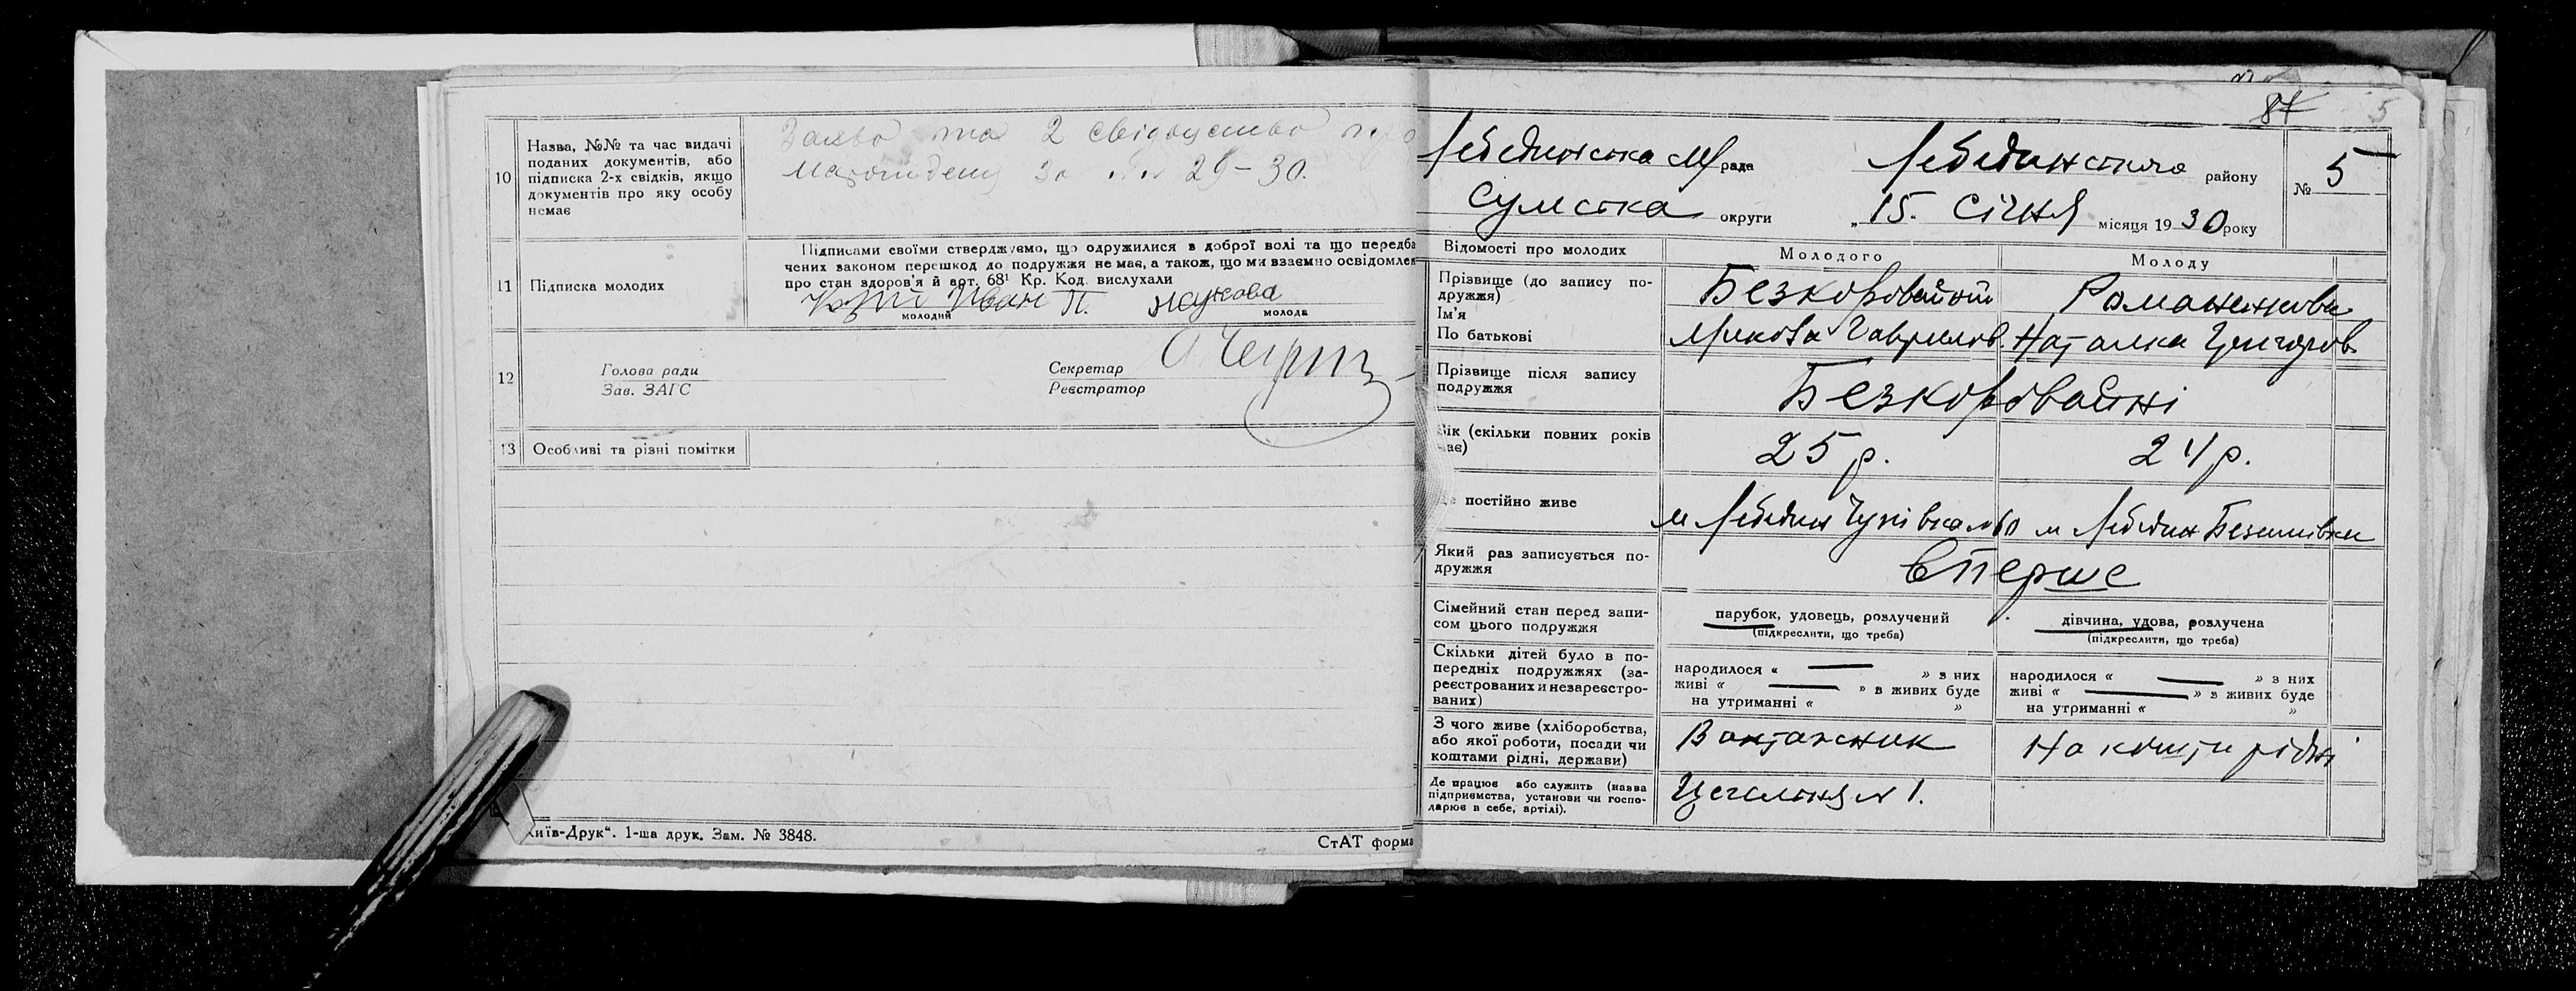 10
Назва, №№ та час видачі
поданих документів, або
підписка 2-х свідків, якщо
документів про яку особу
немає
Заява та 2 свідоцтва про
29-30.
11
Підписка молодих
Підписами своїми стверджуємо, що одружилися в доброї волі та що передба
чених законом перешкод до подружжя не має, а також, що ми взаємно освідомлен
про стан здоров'я й арт. 68¹ Кр. Код. вислухали
Иван П.
молодий
молода
12
Голова ради
Зав. ЗАГС
Секретар
Реєстратор
13
Особливі та різні помітки
иїв-Друк“. 1-ша друк. Зам. № 3848.
СтАТ форма
84
5
Лебединська м рада
Лебединського району
№ 5
Сумська округи
„15. Січня місяця 1930 року
Відомості про молодих
Молодого
Молоду
Прізвище (до запису по-
дружжя)
Безкоровайний
Романенкова
Ім'я
По батькові
Микола Гаврилов.
Наталка Григоров
Прізвище після запису
подружжя
Безкоровайні
Вік (скільки повних років
має)
25 р.
21 р.
постійно живе
м Лебедин
м Лебедин
Який раз записується по-
дружжя
вперше
Сімейний стан перед запи-
сом цього подружжя
парубок, удовець, розлучений
(підкреслити, що треба)
дівчина, удова, розлучена
(підкреслити, що треба)
Скільки дітей було в по-
передніх подружжях (за-
реєстрованих и незареєстро-
ваних)
народилося « — » з них
живі « — » в живих буде
на утриманні « »
народилося « — » з них
живі « — » з живих буде
на утриманні « »
З чого живе (хліборобства,
або якої роботи, посади чи
коштами рідні, держави)
Вантажник
На кошти рідні
Де працює або служить (назва
підприємства, установи чи госпо-
дарює в себе, артілі).
Цегельня № 1.